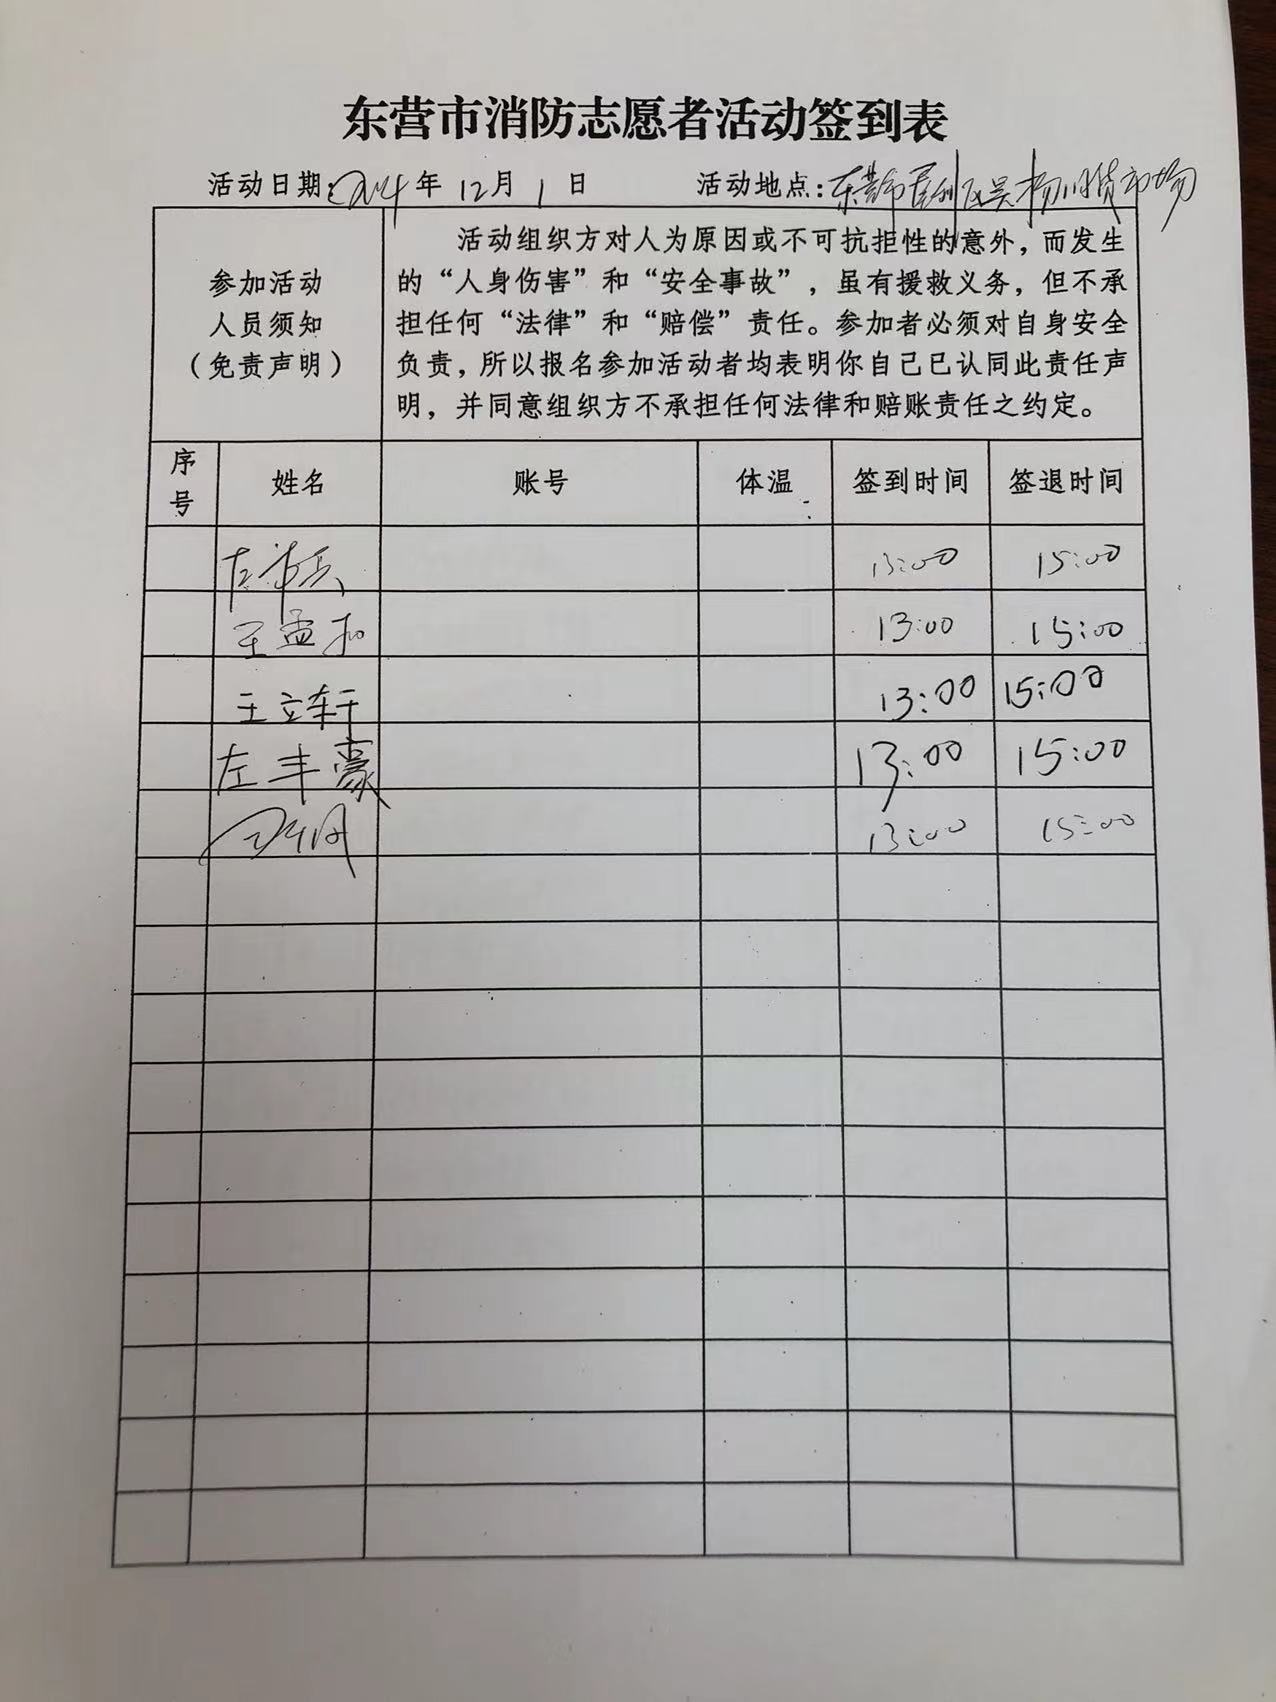 东营市消防志愿者活动签到表
活动日期: 年 12月 1 日 活动地点:东营市垦利区 市场
参加活动
人员须知
（免责声明）
活动组织方对人为原因或不可抗拒性的意外，而发生
的“人身伤害”和“安全事故”，虽有援救义务，但不承
担任何“法律”和“赔偿”责任。参加者必须对自身安全
负责，所以报名参加活动者均表明你自己已认同此责任声
明，并同意组织方不承担任何法律和赔账责任之约定。
序号 姓名 账号 体温 签到时间 签退时间
13:00 15:00
王孟 13:00 15:00
王立轩 13:00 15:00
左丰豪 13:00 15:00
13:00 15:00